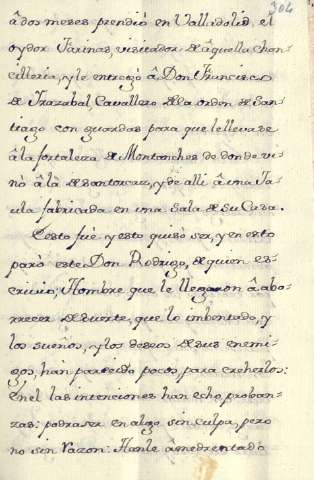 304
â dos meses prendió en Valladolid, el
oydor Fárinas, visitador de âquella chan-
cilleria, y le entregó â Don Francisco
de Yrazabal, Cavallero dela orden de San-
tiago con guardas para que le lleva se
â la fortaleza de Montanches de donde vi-
no â là de santorcaz, y de alli â una Ja-
ula fabricada en una Sala de su Casa.
Cesto fué y esto quisó ser, y en esto
paró este Don Rodrigo, de quien es-
crivio; Hombre que le llegaron â abo-
rrecer de suerte, que lo imbentado, y
los sueños, y los deseos de sus enemi-
gos, han parecido pocos, para creherlos:
En el las intenciones han echo proban-
zas: podra ser en algo sin culpa, pero
no sin razon: Hanle âmedrentado